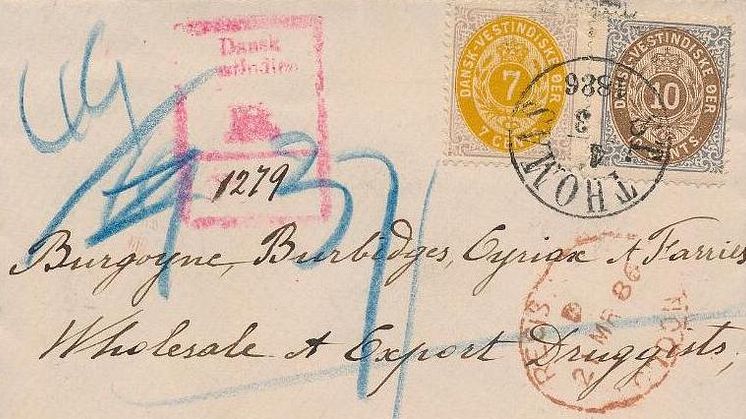 Dansk
Vestindien
DANSK-VESTINDISKE ØER
7
7 CENTS
DANSK-VESTINDISKE ØER
10
CENTS
ST. THOMAS
1886
1279
Burgoyne, Burbidges, Cyriax & Farries
Wholesale & Export Druggists,
REGIS
MR 86
LONDON